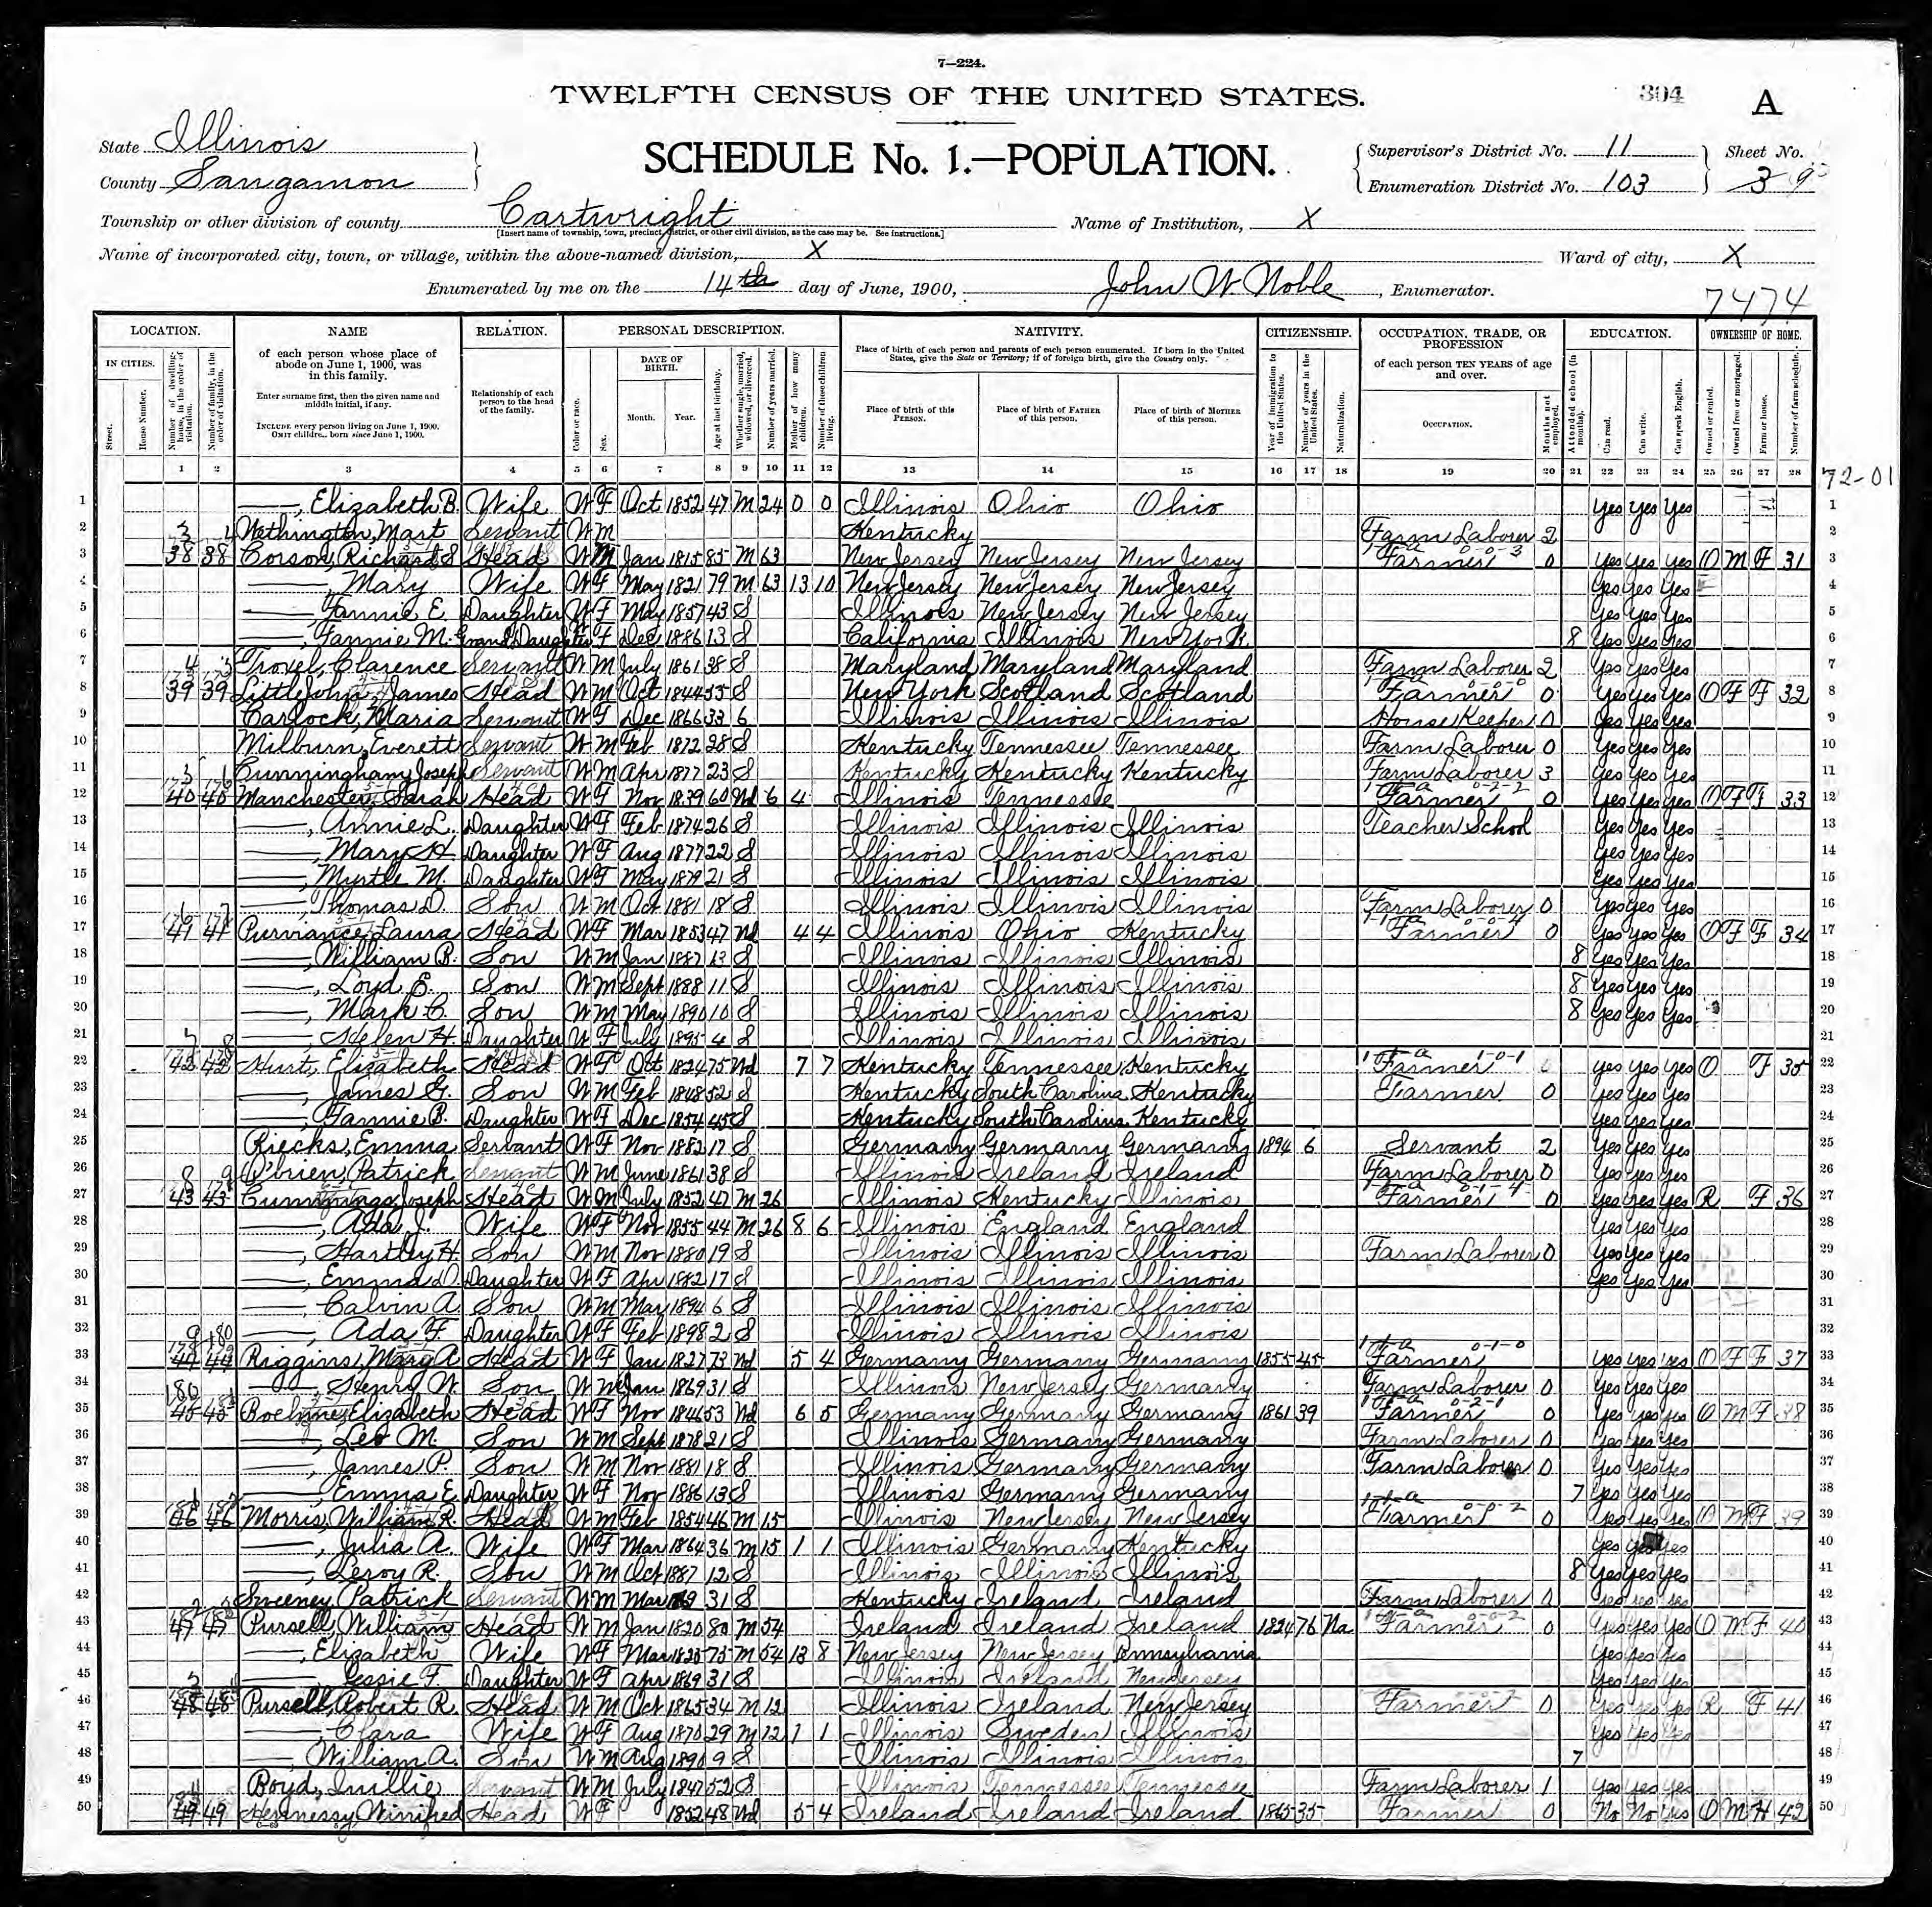 7—224.
TWELFTH CENSUS OF THE UNITED STATES.
304 A
State Illinois
County Sangamon
SCHEDULE No. 1.—POPULATION.
Supervisor's District No. 11
Enumeration District No. 103
Sheet No. 3
Township or other division of county Cartwright
[Insert name of township, town, precinct, district, or other civil division, as the case may be. See instructions.]
Name of Institution, X
Name of incorporated city, town, or village, within the above-named division, X
Ward of city, X
Enumerated by me on the 14th day of June, 1900, John W Noble, Enumerator.
7474
LOCATION. NAME RELATION. PERSONAL DESCRIPTION. NATIVITY. CITIZENSHIP. OCCUPATION, TRADE, OR PROFESSION EDUCATION. OWNERSHIP OF HOME.
IN CITIES. Street. House Number. Number of dwelling-house, in the order of visitation. Number of family, in the order of visitation.
of each person whose place of abode on June 1, 1900, was in this family.
Enter surname first, then the given name and middle initial, if any.
INCLUDE every person living on June 1, 1900. OMIT children born since June 1, 1900.
Relationship of each person to the head of the family.
Color or race. Sex. DATE OF BIRTH. Month. Year. Age at last birthday. Whether single, married, widowed, or divorced. Number of years married. Mother of how many children. Number of these children living.
Place of birth of each person and parents of each person enumerated. If born in the United States, give the State or Territory; if of foreign birth, give the Country only.
Place of birth of this PERSON. Place of birth of FATHER of this person. Place of birth of MOTHER of this person.
Year of immigration to the United States. Number of years in the United States. Naturalization.
of each person TEN YEARS of age and over.
OCCUPATION. Months not employed.
Attended school (in months). Can read. Can write. Can speak English.
Owned or rented. Owned free or mortgaged. Farm or house. Number of farm schedule.
1 2 3 4 5 6 7 8 9 10 11 12 13 14 15 16 17 18 19 20 21 22 23 24 25 26 27 28
72-01
1 ——, Elizabeth B. Wife W F Oct 1852 47 M 24 0 0 Illinois Ohio Ohio Yes Yes Yes 1
2 Wethington, Mart Servant W M Kentucky Farm Laborer 2 2
3 38 38 Corson, Richard S Head W M Jan 1815 85 M 63 New Jersey New Jersey New Jersey Farmer 0 Yes Yes Yes O M F 31 3
4 —— Mary Wife W F May 1821 79 M 63 13 10 New Jersey New Jersey New Jersey Yes Yes Yes 4
5 ——, Fannie E. Daughter W F May 1857 43 S Illinois New Jersey New Jersey Yes Yes Yes 5
6 ——, Fannie M. Grand Daughter W F Dec 1886 13 S California Illinois New York 8 Yes Yes Yes 6
7 Troxel, Clarence Servant W M July 1861 38 S Maryland Maryland Maryland Farm Laborer 2 Yes Yes Yes 7
8 39 39 Littlejohn, James Head W M Oct 1844 55 S New York Scotland Scotland Farmer 0 Yes Yes Yes O F F 32 8
9 Carlock, Maria Servant W F Dec 1866 33 Illinois Illinois Illinois House Keeper 0 Yes Yes Yes 9
10 Milburn, Everett Servant W M Feb 1872 28 S Kentucky Tennessee Tennessee Farm Laborer 0 Yes Yes Yes 10
11 Cunningham, Joseph Servant W M Apr 1877 23 S Kentucky Kentucky Kentucky Farm Laborer 3 Yes Yes Yes 11
12 40 40 Manchester, Sarah Head W F Nov 1839 60 Wd 6 4 Illinois Tennessee Farmer 0 Yes Yes Yes O F F 33 12
13 ——, Annie L. Daughter W F Feb 1874 26 S Illinois Illinois Illinois Teacher School Yes Yes Yes 13
14 ——, Mary H. Daughter W F Aug 1877 22 S Illinois Illinois Illinois Yes Yes Yes 14
15 ——, Myrtle M. Daughter W F May 1879 21 S Illinois Illinois Illinois Yes Yes Yes 15
16 ——, Thomas D. Son W M Oct 1881 18 S Illinois Illinois Illinois Farm Laborer 0 Yes Yes Yes 16
17 41 41 Purviance, Laura Head W F Mar 1853 47 Wd 4 4 Illinois Ohio Kentucky Farmer 0 Yes Yes Yes O F F 34 17
18 ——, William B. Son W M Jan 1887 13 S Illinois Illinois Illinois 8 Yes Yes Yes 18
19 ——, Loyd E. Son W M Sept 1888 11 S Illinois Illinois Illinois 8 Yes Yes Yes 19
20 ——, Mark C. Son W M May 1890 10 S Illinois Illinois Illinois 8 Yes Yes Yes 20
21 ——, Helen H. Daughter W F July 1895 4 S Illinois Illinois Illinois 21
22 42 42 Hurt, Elizabeth Head W F Oct 1824 75 Wd 7 7 Kentucky Tennessee Kentucky Farmer Yes Yes Yes O F 35 22
23 ——, James G. Son W M Feb 1848 52 S Kentucky South Carolina Kentucky Farmer 0 Yes Yes Yes 23
24 ——, Fannie B. Daughter W F Dec 1854 45 S Kentucky South Carolina Kentucky Yes Yes Yes 24
25 Riecks, Emma Servant W F Nov 1882 17 S Germany Germany Germany 1894 6 Servant 2 Yes Yes Yes 25
26 O'brien, Patrick Servant W M June 1861 38 S Illinois Ireland Ireland Farm Laborer 0 Yes Yes Yes 26
27 43 43 Cummings, Joseph Head W M July 1852 47 M 26 Illinois Kentucky Illinois Farmer 0 Yes Yes Yes R F 36 27
28 ——, Ada J. Wife W F Nov 1855 44 M 26 8 6 Illinois England England Yes Yes Yes 28
29 ——, Hartley H. Son W M Nov 1880 19 S Illinois Illinois Illinois Farm Laborer 0 Yes Yes Yes 29
30 ——, Emma D. Daughter W F Apr 1882 17 S Illinois Illinois Illinois Yes Yes Yes 30
31 ——, Calvin A. Son W M May 1894 6 S Illinois Illinois Illinois 31
32 ——, Ada F. Daughter W F Feb 1898 2 S Illinois Illinois Illinois 32
33 44 44 Riggins, Mary A. Head W F Jan 1827 73 Wd 5 4 Germany Germany Germany 1855 45 Farmer Yes Yes Yes O F F 37 33
34 ——, Henry W. Son W M Jan 1869 31 S Illinois New Jersey Germany Farm Laborer 0 Yes Yes Yes 34
35 45 45 Elizabeth Head W F Nov 1846 53 Wd 6 5 Germany Germany Germany 1861 39 Farmer 0 Yes Yes Yes O M F 38 35
36 ——, Leo M. Son W M Sept 1878 21 S Illinois Germany Germany Farm Laborer 0 Yes Yes Yes 36
37 ——, James P. Son W M Nov 1881 18 S Illinois Germany Germany Farm Laborer 0 Yes Yes Yes 37
38 ——, Emma E. Daughter W F Nov 1886 13 S Illinois Germany Germany 7 Yes Yes Yes 38
39 46 46 Morris, William R. Head W M Feb 1854 46 M 15 Illinois New Jersey New Jersey Farmer 0 Yes Yes Yes O M F 39 39
40 ——, Julia A. Wife W F Mar 1864 36 M 15 1 1 Illinois Germany Kentucky Yes Yes Yes 40
41 ——, Leroy R. Son W M Oct 1887 12 S Illinois Illinois Illinois 8 Yes Yes Yes 41
42 Sweeney, Patrick Servant W M Mar 31 S Kentucky Ireland Ireland Farm Laborer 0 Yes Yes Yes 42
43 47 47 Pursell, William Head W M Jan 1820 80 M 54 Ireland Ireland Ireland 1824 76 Na Farmer 0 Yes Yes Yes O M F 40 43
44 ——, Elizabeth Wife W F Mar 1825 75 M 54 13 8 New Jersey New Jersey Pennsylvania Yes Yes Yes 44
45 ——, Jessie F. Daughter W F Apr 1869 31 S Illinois Ireland New Jersey Yes Yes Yes 45
46 48 48 Pursell, Robert R. Head W M Oct 1865 34 M 12 Illinois Ireland New Jersey Farmer 0 Yes Yes Yes R F 41 46
47 ——, Clara Wife W F Aug 1870 29 M 12 1 1 Illinois Sweden Illinois Yes Yes Yes 47
48 ——, William A. Son W M Aug 1890 9 S Illinois Illinois Illinois 7 48
49 Boyd, Servant W M July 1847 52 S Illinois Tennessee Tennessee Farm Laborer 1 Yes Yes Yes 49
50 49 49 Hennessy, Winifred Head W F 1852 48 Wd 5 4 Ireland Ireland Ireland 1865 35 Farmer 0 No No Yes O M H 42 50